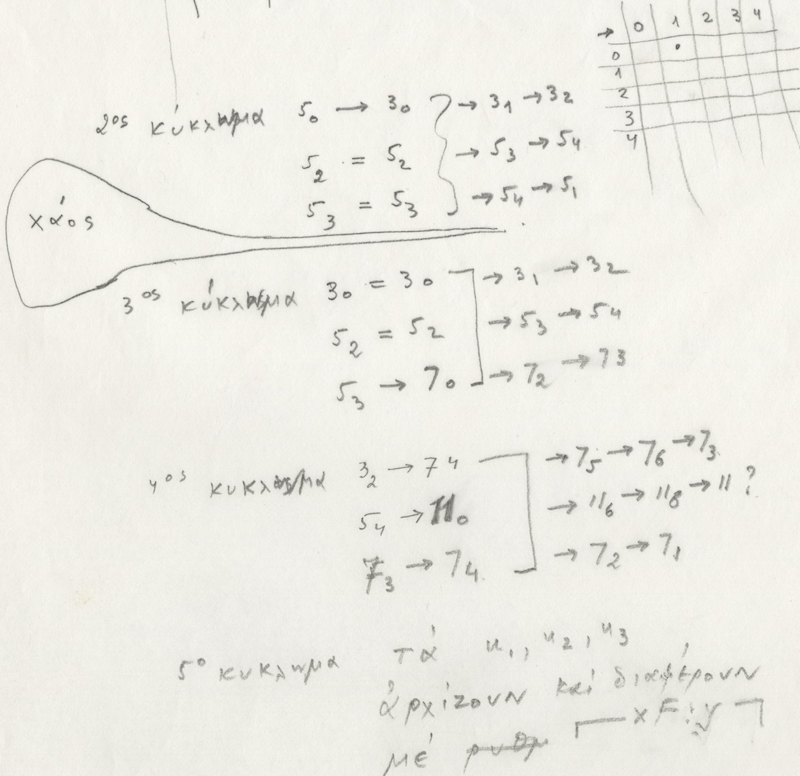 → 0 1 2 3 4
0
1
2
3
4
2ος κύκλωμα 5₀ → 3₀ → 3₁ → 3₂
5₂ = 5₂ → 5₃ → 5₄
5₃ = 5₃ → 5₄ → 5₁
χάος
3ος κύκλωμα 3₀ = 3₀ → 3₁ → 3₂
5₂ = 5₂ → 5₃ → 5₄
5₃ → 7₀ → 7₂ → 73
4ος κυκλωμα 3₂ → 74 → 7₅ → 7₆ → 7₃
5₄ → 11₀ → 11₆ → 11₈ → 11 ?
7₃ → 7₄ → 7₂ → 7₁
5ο κυκλωμα τά u₁, u₂, u₃
άρχίζουν καί διαφέρουν
μέ ρυθμ